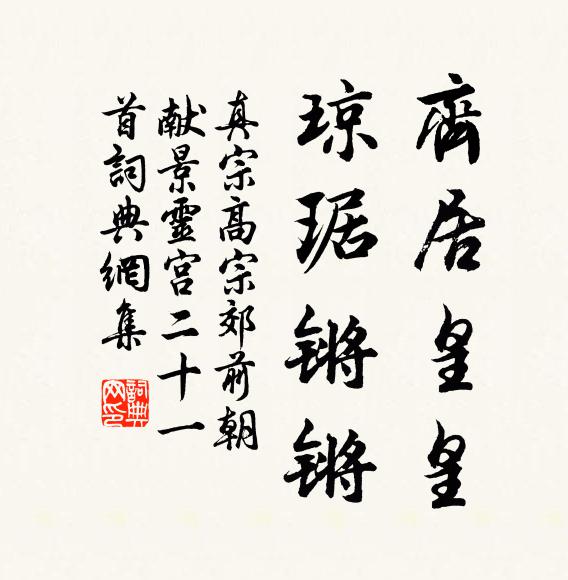 齊居皇皇
琼琚锵锵
真宗高宗郊前朝
献景靈宫二十一
首詞典網集
詞典网印